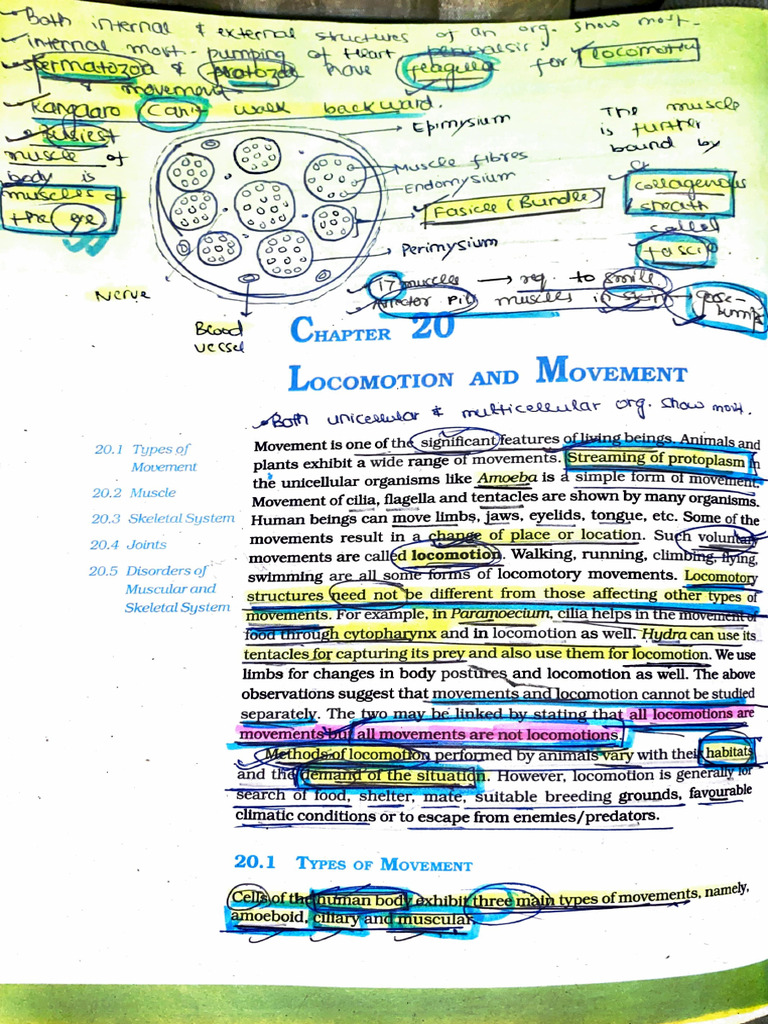 Both internal & external structures of an org. show movt.
internal movt. pumping of heart
spermatozoa & protozoa have flagella for locomotn
& movement.
Kangaaro Can't walk backward.
Busiest
muscle of
body is
muscles of
the eye
Epimysium
Muscle fibres
Endomysium
Fasicle (Bundle)
Perimysium
Nerve
Blood
vessel
The muscle
is further
bound by
collagenous
sheath
called
fascia
17 muscles → req. to smile
Arrector Pili muscles in skin → Goose-
bumps
CHAPTER 20
LOCOMOTION AND MOVEMENT
Both unicellular & multicellular org. show movt.
20.1 Types of
Movement
20.2 Muscle
20.3 Skeletal System
20.4 Joints
20.5 Disorders of
Muscular and
Skeletal System
Movement is one of the significant features of living beings. Animals and
plants exhibit a wide range of movements. Streaming of protoplasm in
the unicellular organisms like Amoeba is a simple form of movement.
Movement of cilia, flagella and tentacles are shown by many organisms.
Human beings can move limbs, jaws, eyelids, tongue, etc. Some of the
movements result in a change of place or location. Such voluntary
movements are called locomotion. Walking, running, climbing, flying,
swimming are all some forms of locomotory movements. Locomotory
structures need not be different from those affecting other types of
movements. For example, in Paramoecium, cilia helps in the movement of
food through cytopharynx and in locomotion as well. Hydra can use its
tentacles for capturing its prey and also use them for locomotion. We use
limbs for changes in body postures and locomotion as well. The above
observations suggest that movements and locomotion cannot be studied
separately. The two may be linked by stating that all locomotions are
movements but all movements are not locomotions.
Methods of locomotion performed by animals vary with their habitats
and the demand of the situation. However, locomotion is generally for
search of food, shelter, mate, suitable breeding grounds, favourable
climatic conditions or to escape from enemies/predators.
20.1 TYPES OF MOVEMENT
Cells of the human body exhibit three main types of movements, namely,
amoeboid, ciliary and muscular.